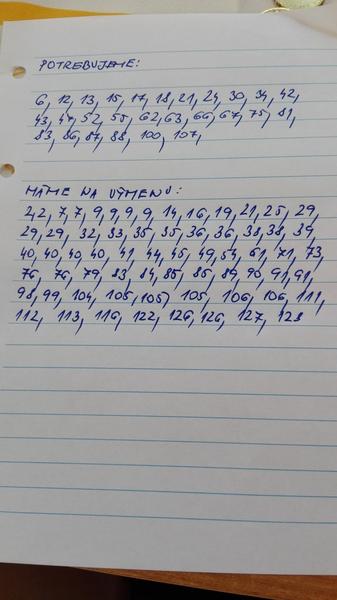 POTREBUJEME:
6, 12, 13, 15, 17, 18, 21, 24, 30, 34, 42,
43, 47, 52, 55, 62, 63, 66, 67, 75, 81,
83, 86, 87, 88, 100, 107,
MÁME NA VÝMENU:
2, 2, 7, 7, 9, 9, 9, 9, 14, 16, 19, 21, 25, 29,
29, 29, 32, 33, 35, 35, 36, 36, 38, 38, 39,
40, 40, 40, 40, 41, 44, 45, 49, 54, 61, 71, 73,
76, 76, 79, 83, 84, 85, 85, 89, 90, 91, 91,
98, 99, 104, 105, 105, 105, 106, 106, 111,
112, 113, 116, 122, 126, 126, 127, 128